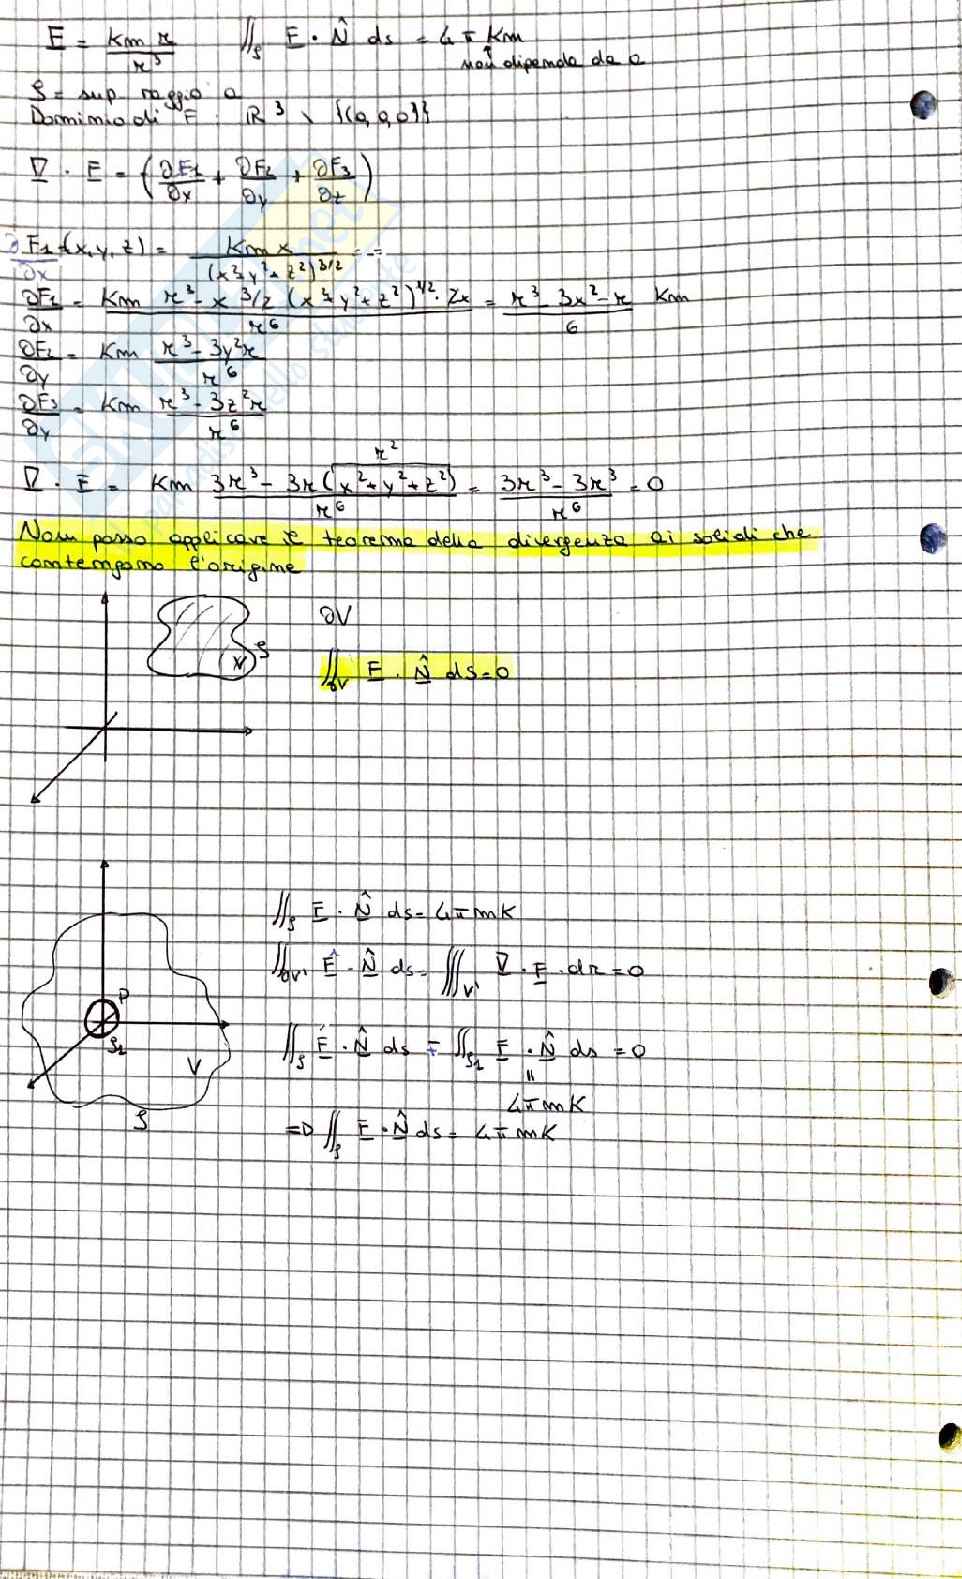 F = Km r / r³   ∬_S F · N̂ ds = 4π Km
non dipende da a
S = sup raggio a
Dominio di F : R³ \ {(0,0,0)}
∇ · F = (∂F₁/∂x + ∂F₂/∂y + ∂F₃/∂z)
∂F₁/∂x (x,y,z) = Km x / (x²+y²+z²)^3/2 = ...
∂F₁/∂x = Km r³ - x 3/2 (x²+y²+z²)^1/2 · 2x / r⁶ = r³ - 3x² - r / 6 Km
∂F₂/∂y = Km r³ - 3y²r / r⁶
∂F₃/∂y = Km r³ - 3z²r / r⁶
r²
∇ · F = Km 3r³ - 3r(x²+y²+z²) / r⁶ = 3r³ - 3r³ / r⁶ = 0
Non posso applicare il teorema della divergenza ai solidi che
contengono l'origine
∂V
S
V
∬_∂V F · N̂ dS = 0
∬_S F · N̂ ds = 4π mK
∬_∂V' F · N̂ ds = ∭_V' ∇ · F · dr = 0
P
S₂
V
S
∬_S F · N̂ ds + ∬_S₂ F · N̂ ds = 0
"
4π mK
=D ∬_S F · N̂ ds = 4π mK